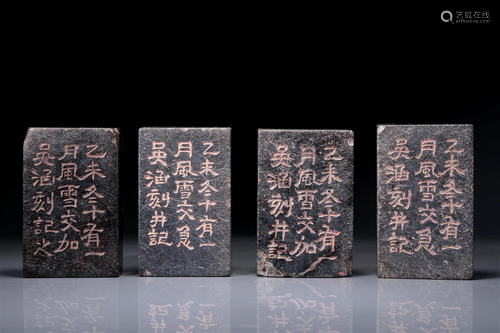 艺狐在线
artfoxlive.com
乙未冬十有一
月風雪交加
吳涵刻記
乙未冬十有一
月風雪交急
吳涵刻并記
乙未冬十有一
月風雪交加
吳涵刻并記
乙未冬十有一
月風雪交急
吳涵刻并記